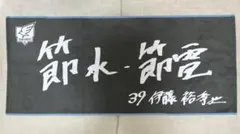 節水・節電
39 伊藤裕季也